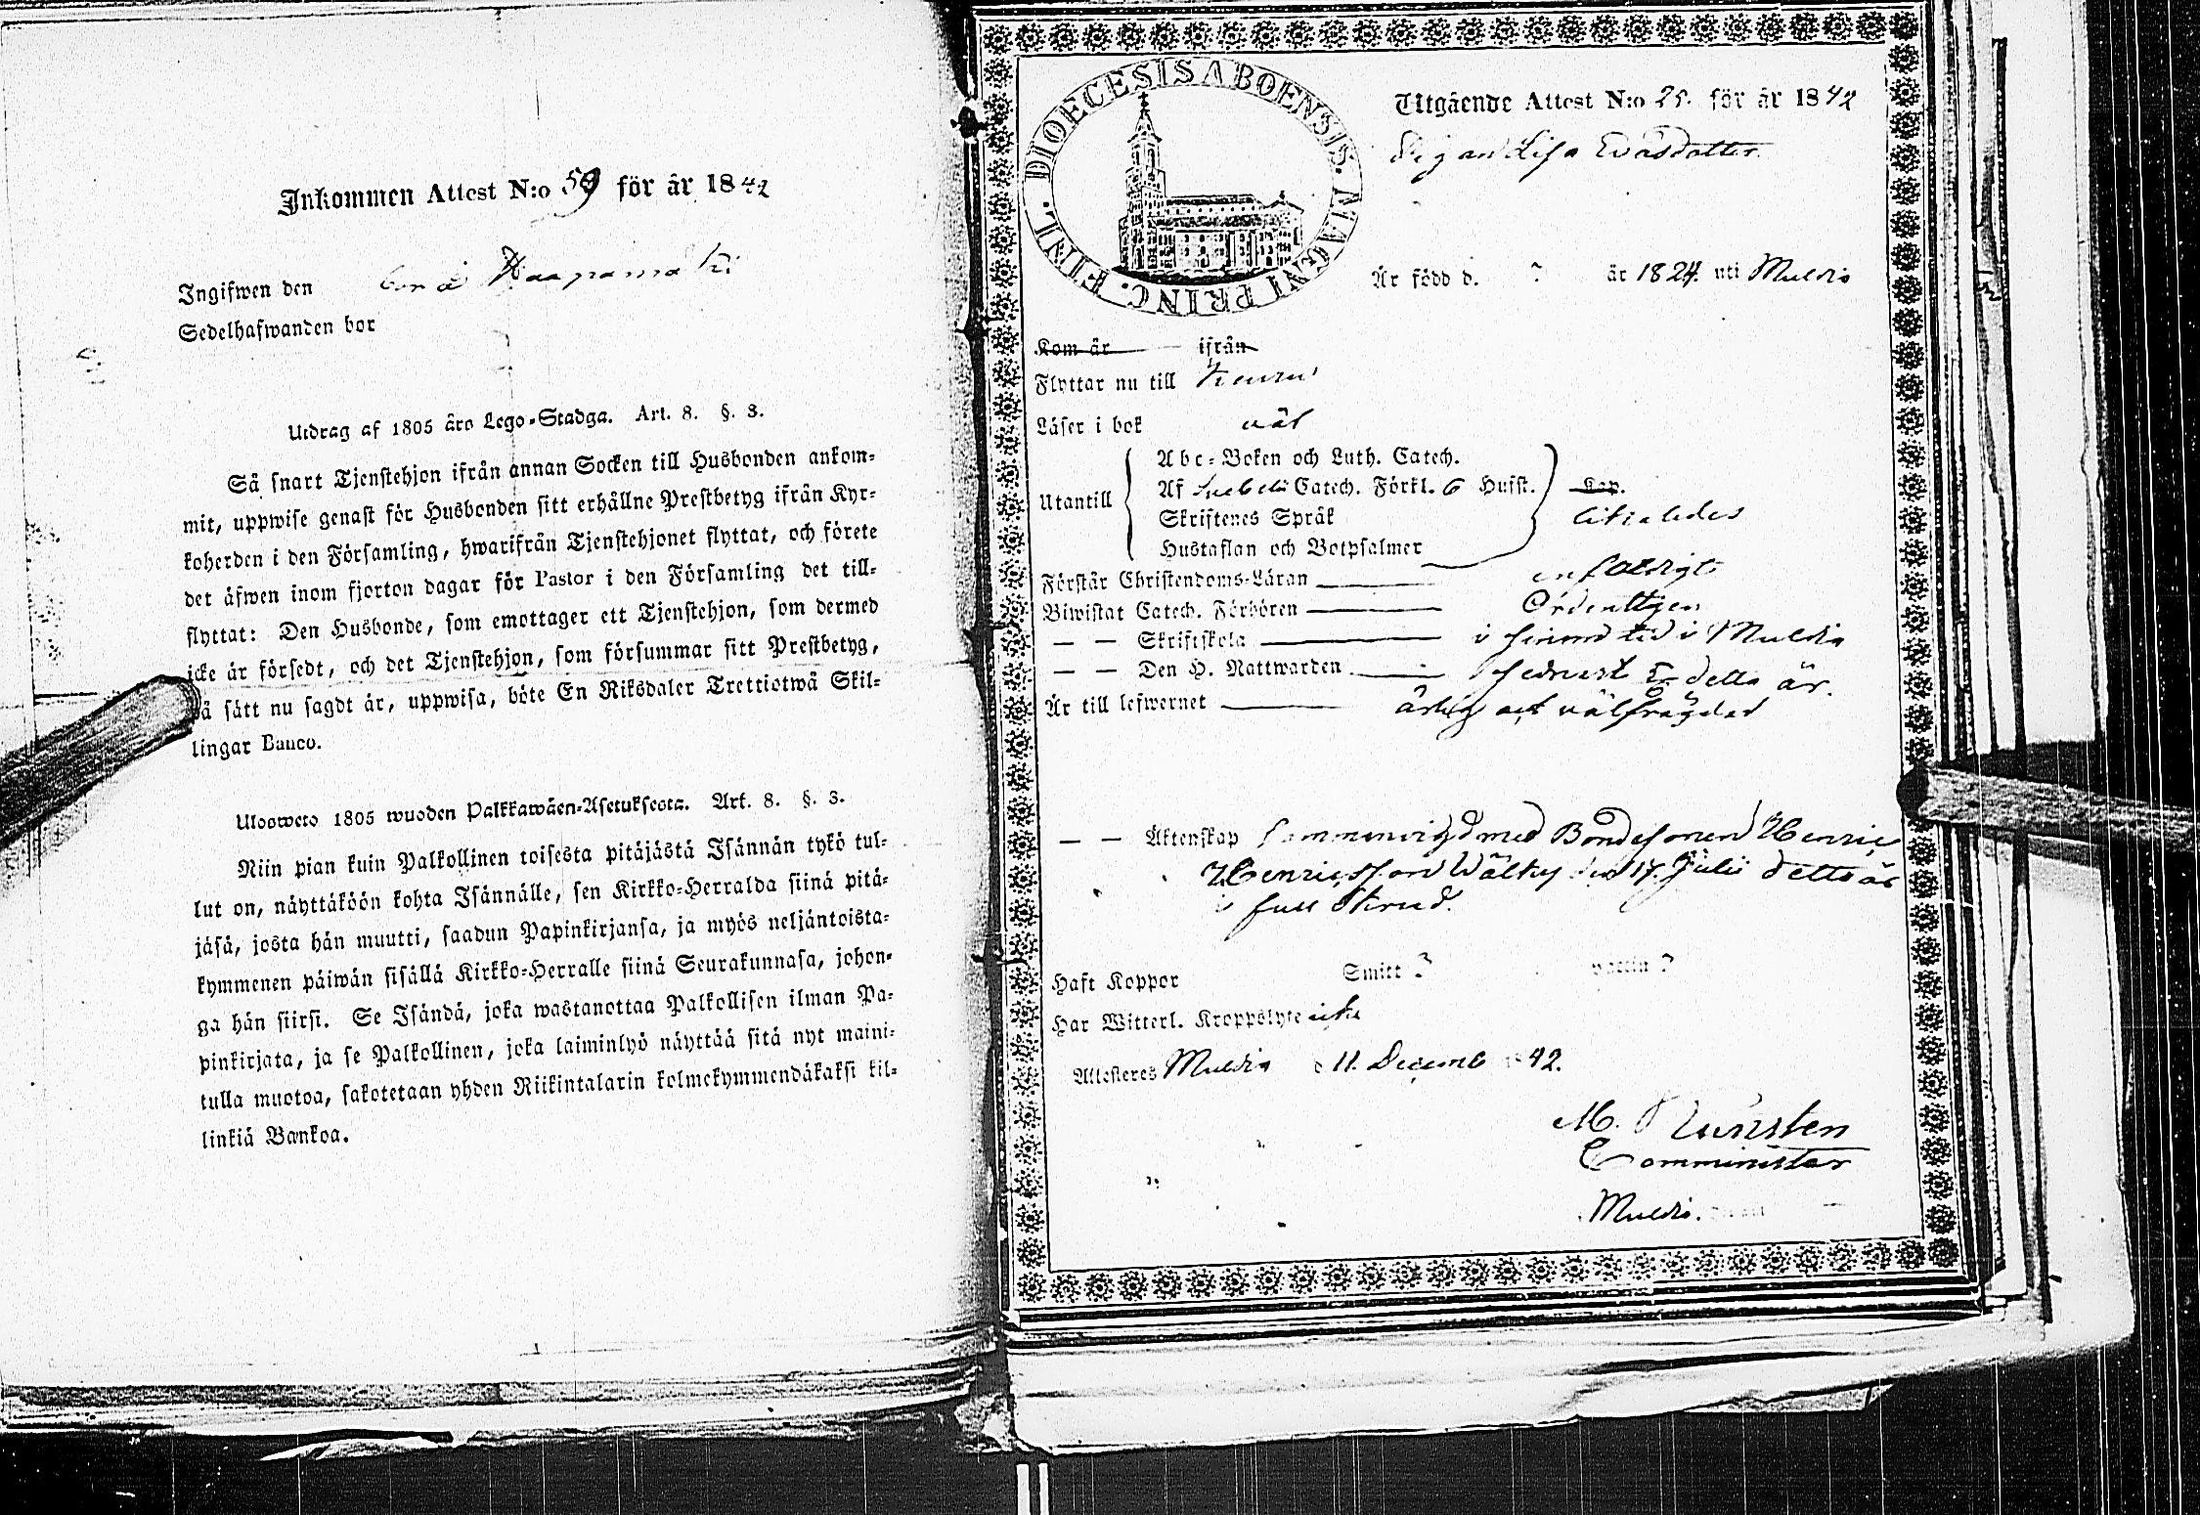 Inkommen Attest N:o 59 för år 1842
Ingifwen den
Sedelhafwanden bor
Haapamäki
Utdrag af 1805 års Lego-Stadga. Art. 8. §. 3.
Så snart Tjenstehjon ifrån annan Socken till Husbonden ankom-
mit, uppwise genast för Husbonden sitt erhållne Prestbetyg ifrån Kyr-
koherden i den Församling, hwarifrån Tjenstehjonet flyttat, och förete
det äfwen inom fjorton dagar för Pastor i den Församling det till-
flyttat: Den Husbonde, som emottager ett Tjenstehjon, som dermed
icke är försedt, och det Tjenstehjon, som försummar sitt Prestbetyg,
på sätt nu sagdt är, uppwisa, böte En Riksdaler Trettiotwå Skil-
lingar Banco.
Ulosweto 1805 wuoden Palkkawäen-Asetuksesta. Art. 8. §. 3.
Niin pian kuin Palkollinen toisesta pitäjästä Isännän tykö tul-
lut on, näyttäköön kohta Isännälle, sen Kirkko-Herralda siinä pitä-
jäsä, josta hän muutti, saadun Papinkirjansa, ja myös neljäntoista-
kymmenen päiwän sisällä Kirkko-Herralle siinä Seurakunnasa, johon-
ga hän siirsi. Se Isändä, joka wastanottaa Palkollisen ilman Pa-
pinkirjata, ja se Palkollinen, joka laiminlyö näyttää sitä nyt maini-
tulla muotoa, sakotetaan yhden Riikintalarin kolmekymmendäkaksi kil-
linkiä Bankoa.
DIOECESIS ABOENSIS. MAGNI PRINC. FINL.
Utgående Attest N:o 25. för år 1842
Pigan Lisa Evasdotter
Är född d. ? år 1824. uti Muldia
Kom år ifrån
Flyttar nu till Keuru
Läser i bok väl
Utantill
Abc-Boken och Luth. Catech.
Af Svebelii Catech. Förkl. 6 Hufst.
Skriftenes Språk
Hustaflan och Botpsalmer
Kap.
Förstår Christendoms-Läran enfaldigt
Biwistat Catech. Förhören Ordentligen
— — Skriftskola i sinom tid i Muldia
— — Den H. Nattwarden senast detta år.
Är till lefwernet ärlig och välfrägdad
— — Äktenskap Sammanvigd med Bondesonen Henric
Henricsson Wälky den 17. Julii detta år
i full Skrud.
Haft Koppor Smitt ?
Har Witterl. Kroppslyte icke
Attesteras Muldia d 11. Decemb 1842.
M.
Comminister
Muldia.